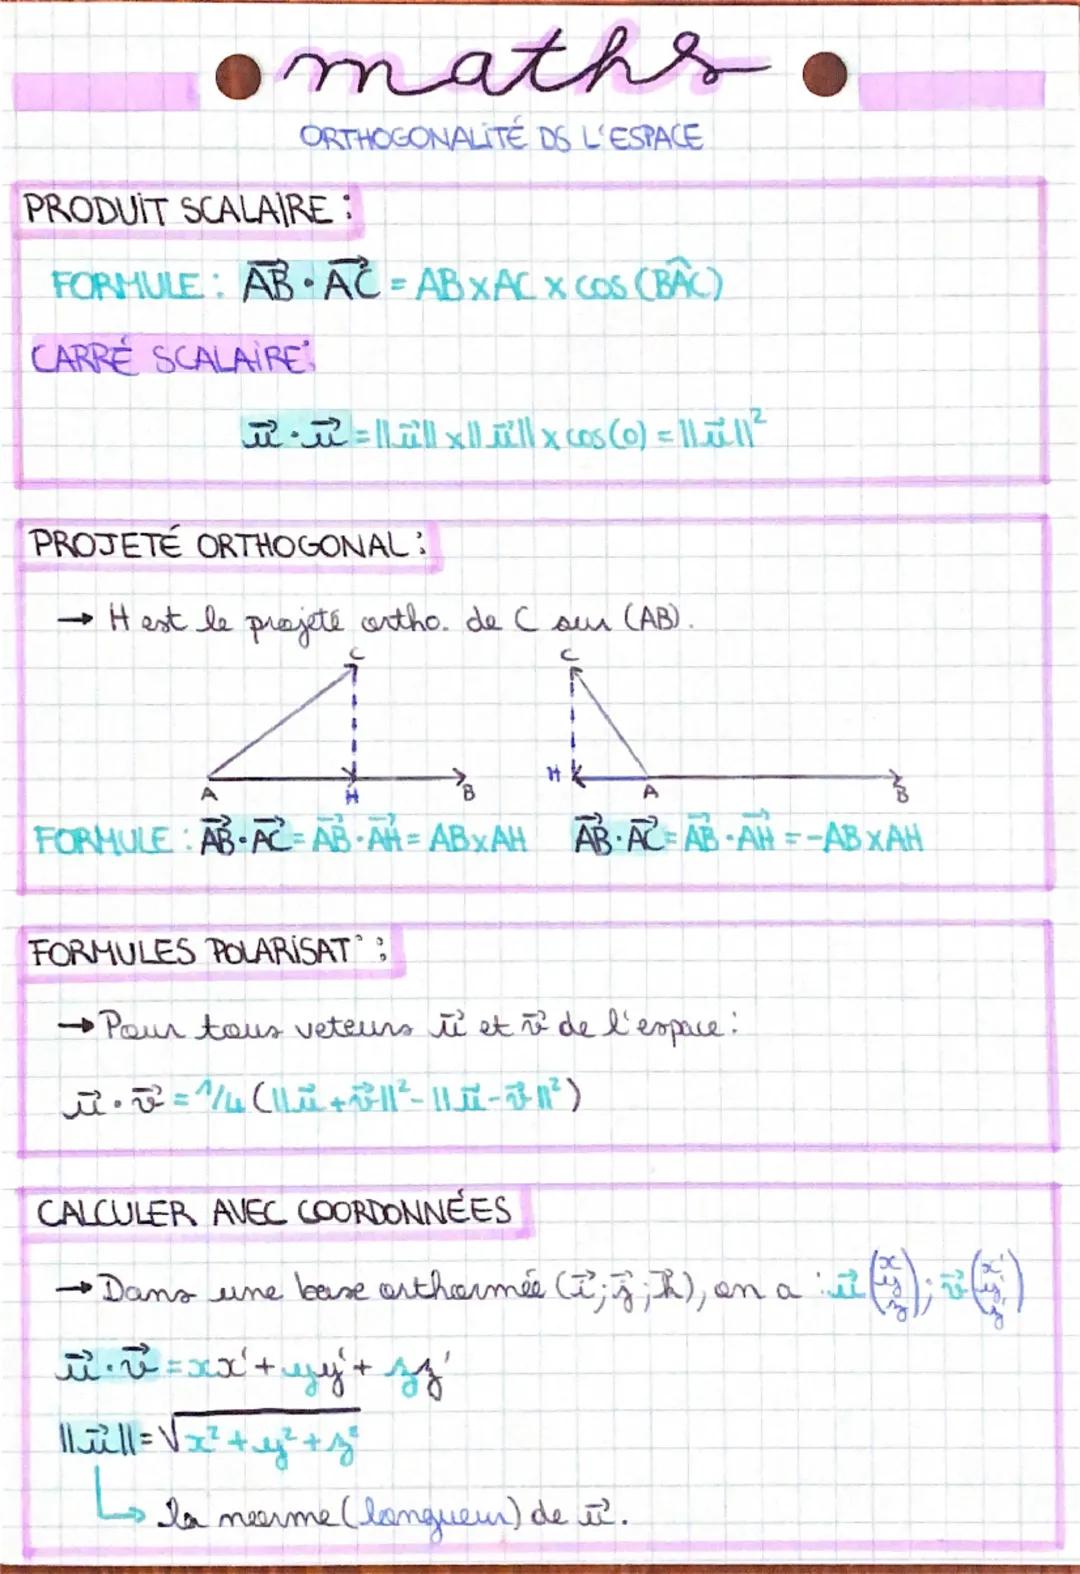 maths
ORTHOGONALITÉ DS L'ESPACE
PRODUIT SCALAIRE :
FORMULE : AB⃗ · AC⃗ = AB x AC x cos (BÂC)
CARRÉ SCALAIRE :
u⃗ · u⃗ = ||u⃗|| x ||u⃗|| x cos(0) = ||u⃗||²
PROJETÉ ORTHOGONAL :
→ H est le projeté ortho. de C sur (AB).
C C
H
A H B A B
FORMULE : AB⃗ · AC⃗ = AB⃗ · AH⃗ = AB x AH AB⃗ · AC⃗ = AB⃗ · AH⃗ = - AB x AH
FORMULES POLARISAT° :
→ Pour tous veteurs u⃗ et v⃗ de l'espace :
u⃗ · v⃗ = 1/4 (||u⃗ + v⃗||² - ||u⃗ - v⃗||²)
CALCULER AVEC COORDONNÉES
→ Dans une base orthormée (i⃗ ; j⃗ ; k⃗), on a : u⃗ (x y z) ; v⃗ (x' y' z')
u⃗ · v⃗ = xx' + yy' + zz'
||u⃗|| = √x² + y² + z²
↳ la neorme (longueur) de u⃗.